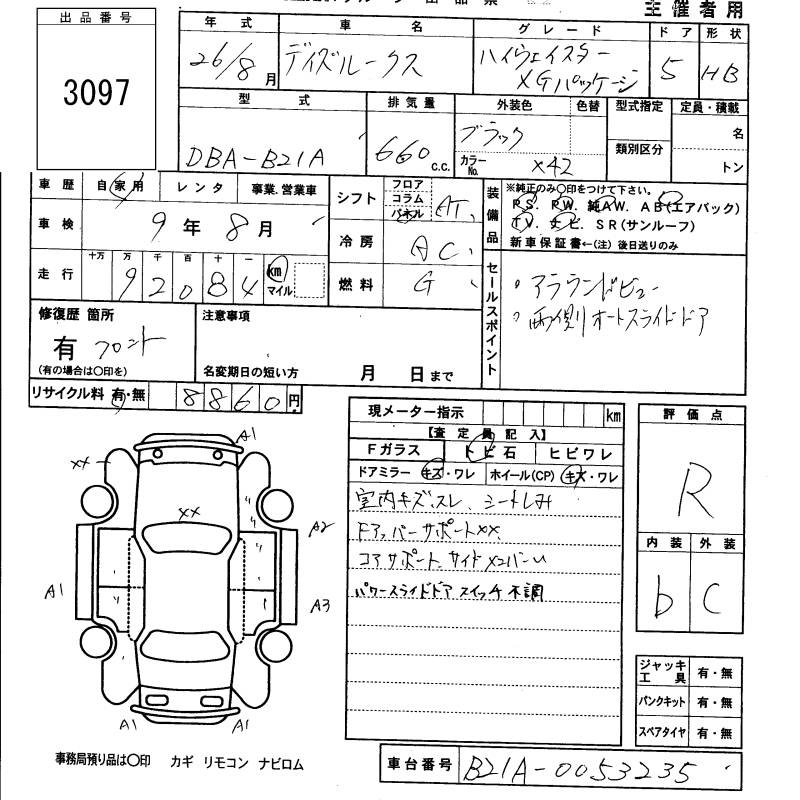 主催者用
出品番号
3097
年式 車名 グレード ドア 形状
26/8月 デイズルークス ハイウェイスター XGパッケージ 5 HB
型式 排気量 外装色 色替 型式指定 定員・積載
DBA-B21A 660 c.c. ブラック カラーNo. X42 類別区分 名 トン
車歴 自家用 レンタ 事業.営業車
車検 9年8月
走行 十万 万 千 百 十 一
92084 km マイル
シフト フロア コラム パネル AT
冷房 AC
燃料 G
装備品
※純正のみ〇印をつけて下さい。
PS. PW. 純AW. AB(エアバック)
TV. ナビ. SR(サンルーフ)
新車保証書←(注) 後日送りのみ
セールスポイント
アラウンドビュー
両側オートスライドドア
修復歴 箇所
有 フロント
(有の場合は〇印を)
注意事項
名変期日の短い方 月 日まで
リサイクル料 有・無 8860円
現メーター指示 km
【査定員記入】
Fガラス トビ石 ヒビワレ
ドアミラー キズ・ワレ ホイール(CP) キズ・ワレ
室内キズ、スレ、シートしみ
Fアッパーサポートxx.
コアサポート、サイドメンバーU
パワースライドドアスイッチ不調
評価点
R
内装 外装
b C
A1
xx
xx
A2
A1
A3
A1
A1
ジャッキ工具 有・無
パンクキット 有・無
スペアタイヤ 有・無
事務局預り品は〇印 カギ リモコン ナビロム
車台番号 B21A-0053235